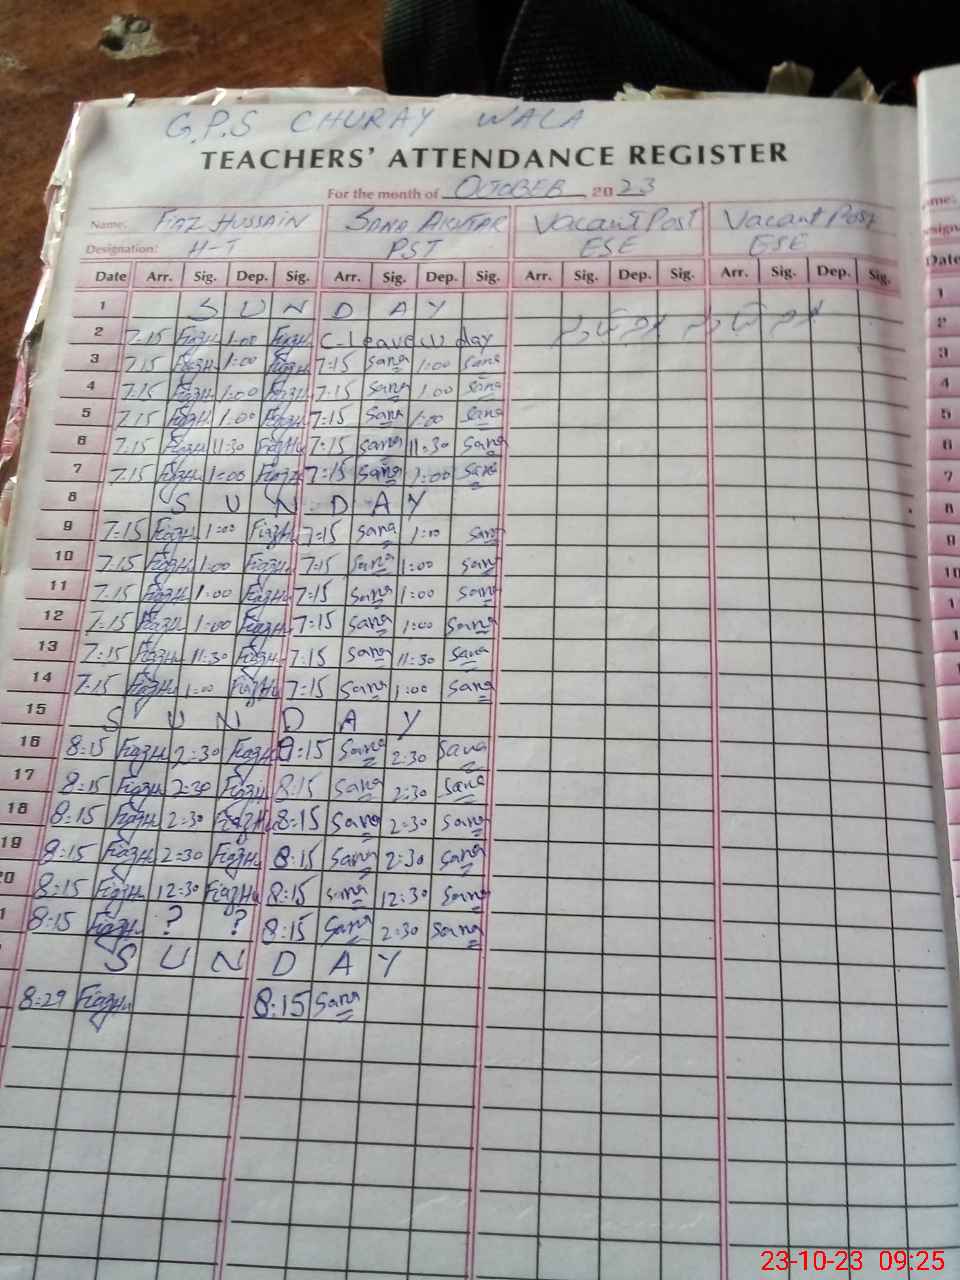 G.P.S CHURAY WALA
TEACHERS' ATTENDANCE REGISTER
For the month of OCTOBER 2023
Name: FIAZ HUSSAIN SANA AKHTAR Vacant Post Vacant Post
Designation: H-T PST ESE ESE
Date Arr. Sig. Dep. Sig. Arr. Sig. Dep. Sig. Arr. Sig. Dep. Sig. Arr. Sig. Dep. Sig.
1 S U N D A Y
2 7:15 FiazH 1:00 FiazH C-Leave day
3 7:15 FiazH 1:00 FiazH 7:15 Sana 1:00 Sana
4 7:15 FiazH 1:00 FiazH 7:15 Sana 1:00 Sana
5 7:15 FiazH 1:00 FiazH 7:15 Sana 1:00 Sana
6 7:15 FiazH 11:30 FiazH 7:15 Sana 11:30 Sana
7 7:15 FiazH 1:00 FiazH 7:15 Sana 1:00 Sana
8 S U N D A Y
9 7:15 FiazH 1:00 FiazH 7:15 Sana 1:00 Sana
10 7:15 FiazH 1:00 FiazH 7:15 Sana 1:00 Sana
11 7:15 FiazH 1:00 FiazH 7:15 Sana 1:00 Sana
12 7:15 FiazH 1:00 FiazH 7:15 Sana 1:00 Sana
13 7:15 FiazH 11:30 FiazH 7:15 Sana 11:30 Sana
14 7:15 FiazH 1:00 FiazH 7:15 Sana 1:00 Sana
15 S U N D A Y
16 8:15 FiazH 2:30 FiazH 8:15 Sana 2:30 Sana
17 8:15 FiazH 2:30 FiazH 8:15 Sana 2:30 Sana
18 8:15 FiazH 2:30 FiazH 8:15 Sana 2:30 Sana
19 8:15 FiazH 2:30 FiazH 8:15 Sana 2:30 Sana
20 8:15 FiazH 12:30 FiazH 8:15 Sana 12:30 Sana
1 8:15 FiazH ? ? 8:15 Sana 2:30 Sana
S U N D A Y
8:29 FiazH 8:15 Sana
23-10-23 09:25